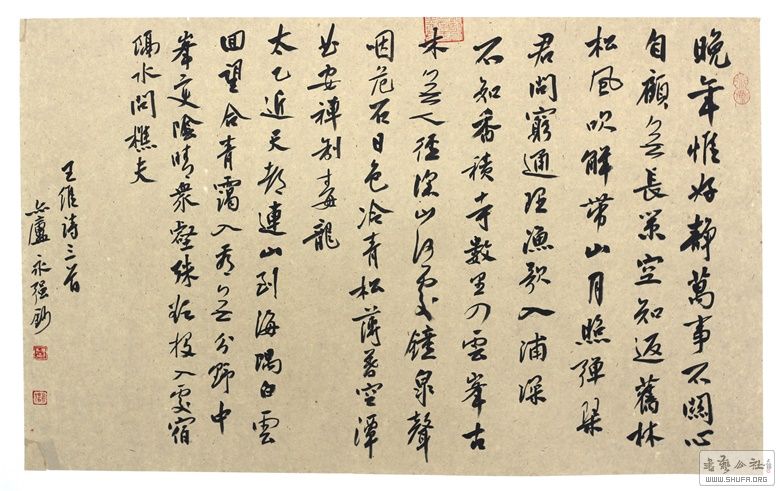 晚年惟好靜萬事不關心
自顧無長策空知返舊林
松風吹解帶山月照彈琴
君問窮通理漁歌入浦深
不知香積寺數里入雲峯古
木無人徑深山何處鐘泉聲
咽危石日色冷青松薄暮空潭
曲安禪制毒龍
太乙近天都連山到海隅白雲
回望合青靄入看無分野中
峯變陰晴衆壑殊欲投人處宿
隔水問樵夫
王維詩三首
廬永强鈔
書藝公社
WWW.SHUFA.ORG